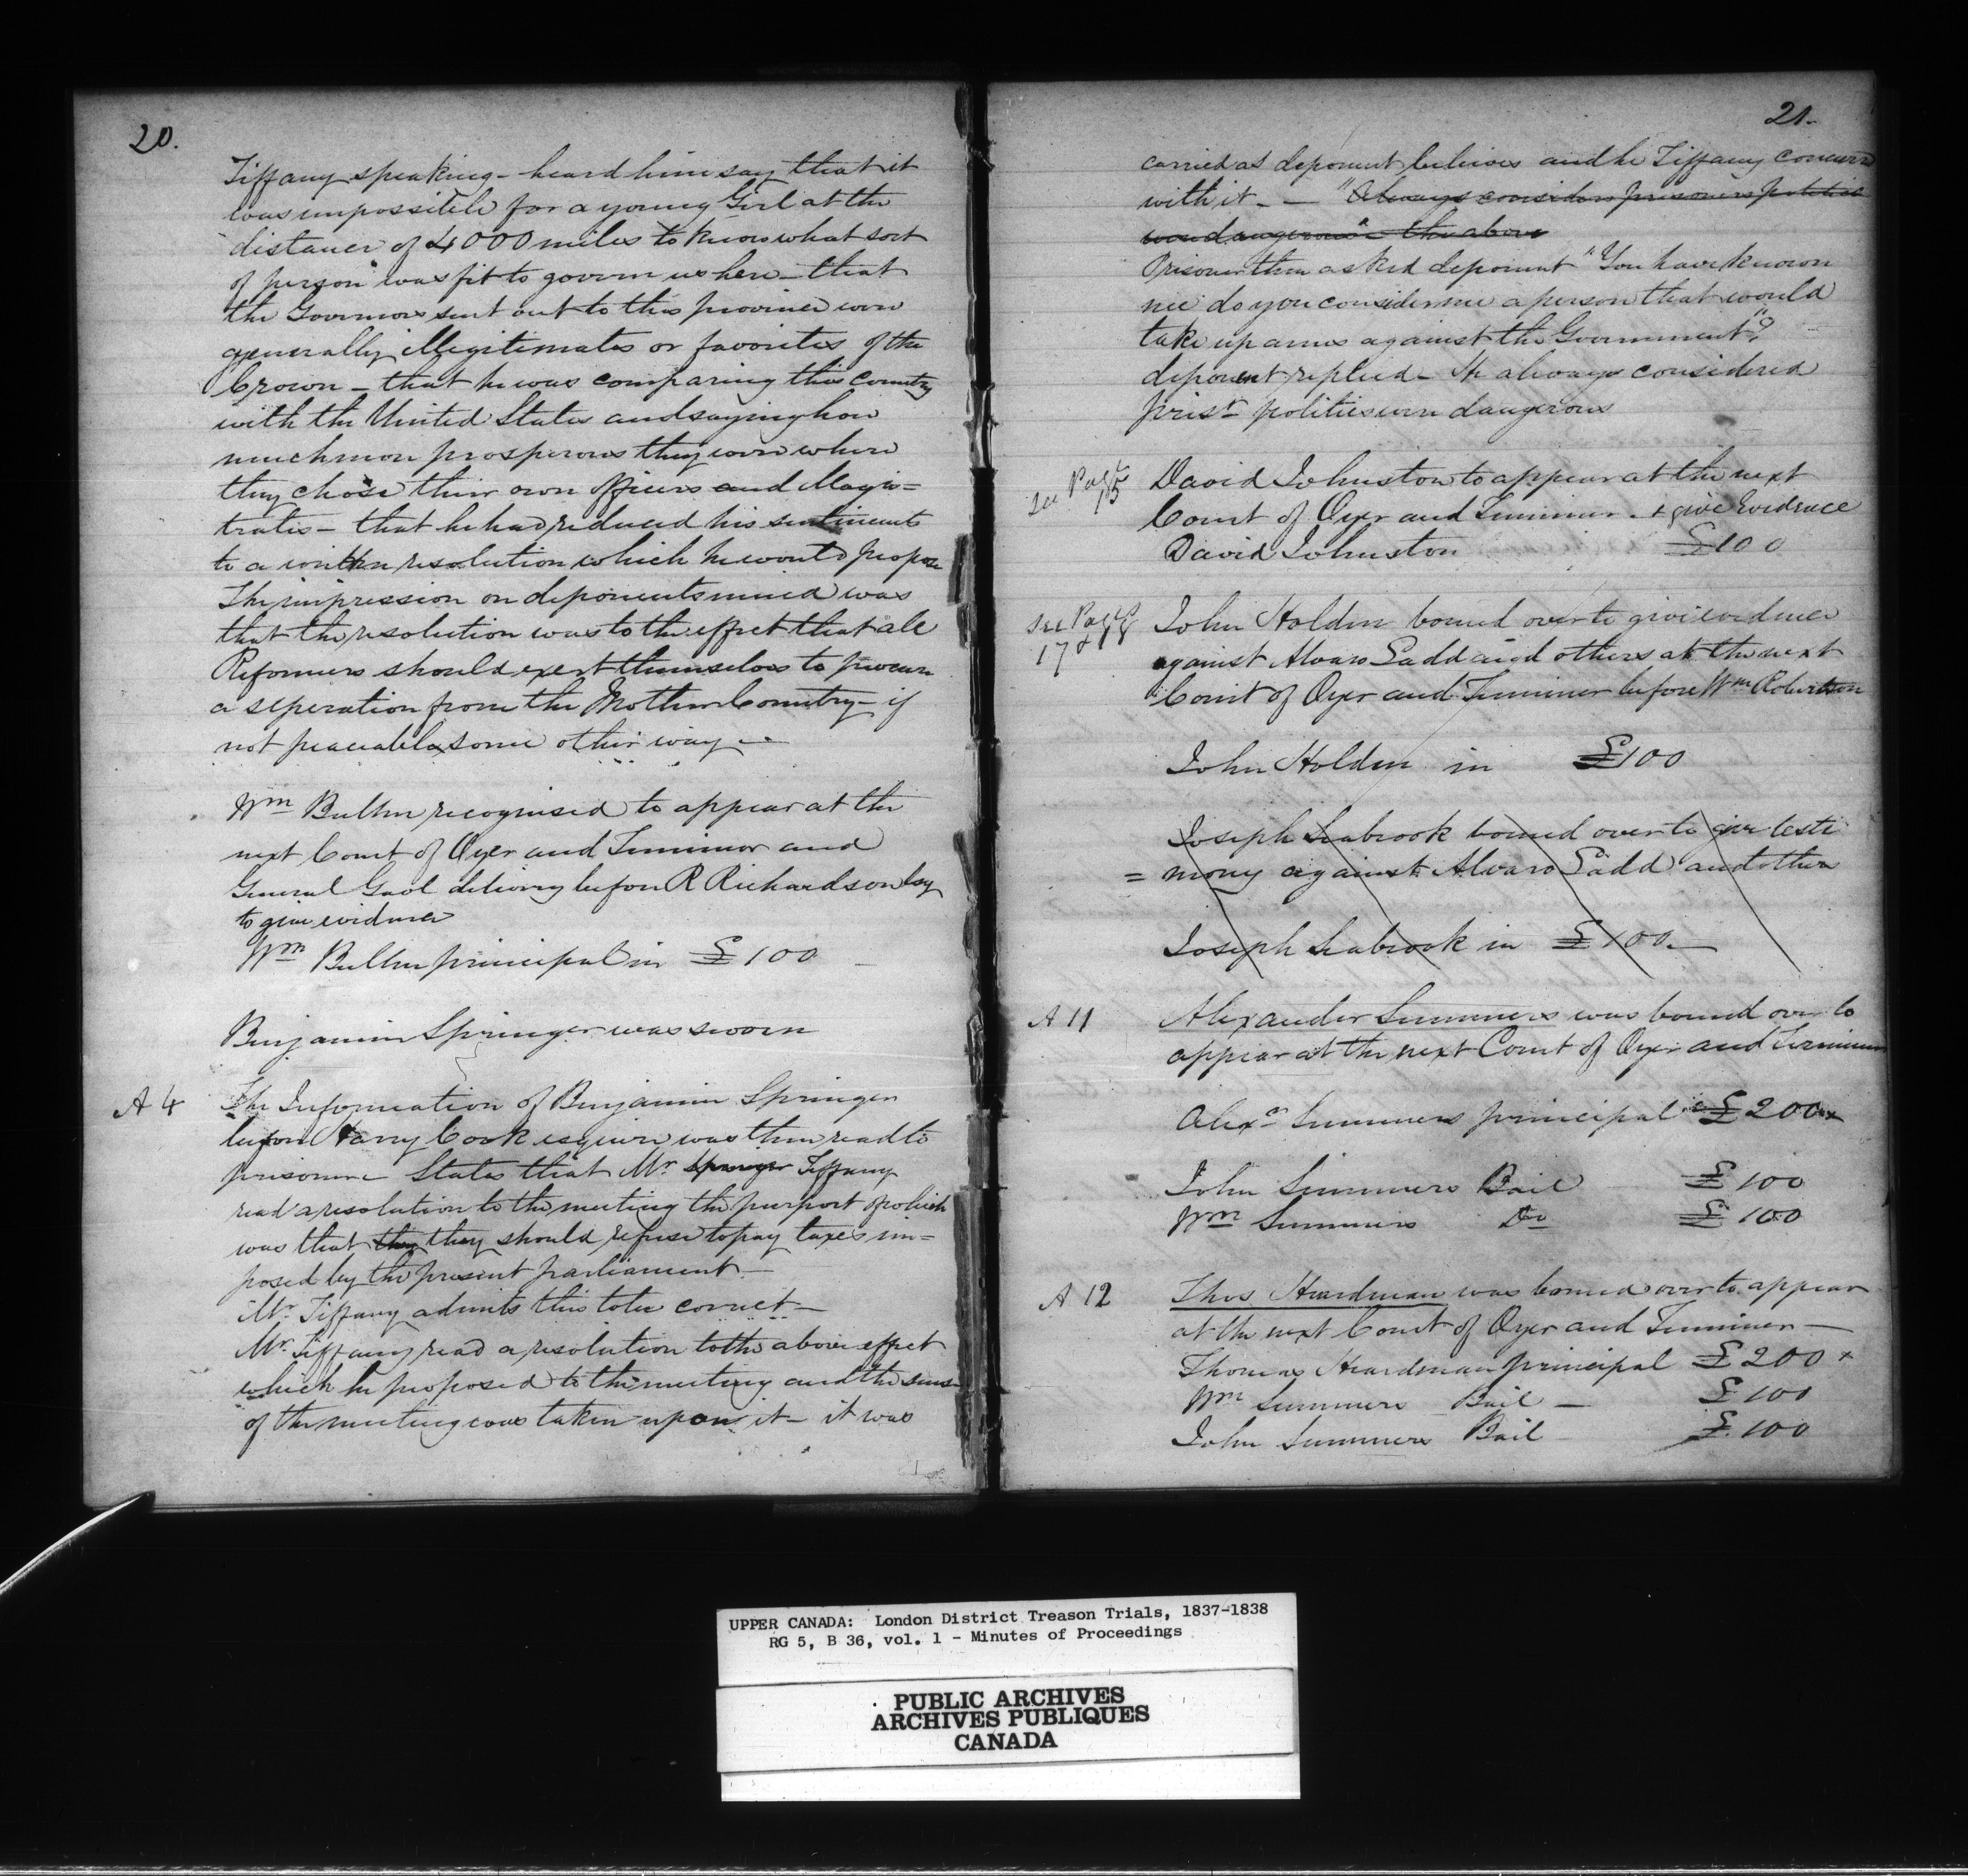 20.
Tiffany speaking - heard him say that it
was impossible for a young Girl at the
distance of 4000 miles to know what sort
of person was fit to govern us here - that
the Governors sent out to this province were
generally illegitimates or favorites of the
Crown - that he was comparing this Country
with the United States and saying how
much more prosperous they were where
they chose their own officers and Magis=
trates - that he had reduced his sentiments
to a written resolution which he would propose
The impression on deponents mind was
that the resolution was to the effect that all
Reformers should exert themselves to procure
a seperation from the Mother Country - if
not peaceably some other way -
Wm Bullen recognised to appear at the
next Court of Oyer and Terminer and
General Gaol delivery before R Richardson Esq
to give evidence
Wm Bullen principal in £100
Benjamin Springer was sworn
A 4 The Information of Benjamin Springer
before Harry Cook esquire was then read to
prisoner States that Mr Springer Tiffany
read a resolution to the meeting the purport of which
was that they they should refuse to pay taxes im=
posed by the present parliament -
Mr. Tiffany admits this to be correct -
Mr. Tiffany read a resolution to the above effect
which he proposed to the meeting and the sense
of the meeting was taken upon it - it was
21.
carried as deponent believes and he Tiffany concurred
with it - - "Always considers prisoners politics
were dangerous" the above
Prisoner then asked deponent "You have known
me do you consider me a person that would
take up arms against the Government"?
deponent replied - He always considered
prisr politics were dangerous
see Page 15
David Johnston to appear at the next
Court of Oyer and Terminer . & give Evidence
David Johnston £100
See Pages 17 & 18
John Holden bound over to give evidence
against Alvaro Ladd and others at the next
Court of Oyer and Terminer before Wm Robertson
John Holden in £100
Joseph Seabrook bound over to give testi
= mony against Alvaro Ladd and others
Joseph Seabrook in £100 -
A 11 Alexander Summers was bound over to
appear at the next Court of Oyer and Terminer
Alexr Summers principal £200 x
John Summers Bail £100
Wm Summers Do £100
A 12 Thos Hardman was bound over to appear
at the next Court of Oyer and Terminer -
Thomas Hardman principal £200 x
Wm Summers Bail - £100
John Summers Bail £100
UPPER CANADA: London District Treason Trials, 1837-1838
RG 5, B 36, vol. 1 - Minutes of Proceedings
PUBLIC ARCHIVES
ARCHIVES PUBLIQUES
CANADA